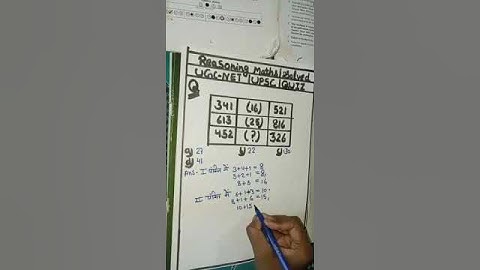 Reasoning Maths Solved
UGC-NET | UPSC | QUIZ
Q
341 (16) 521
613 (25) 816
452 (?) 326
a) 27 b) 22 c) 30
d) 41
Ans- I पंक्ति में 3+4+1 = 8
5+2+1 = 8,
8+8 = 16
II पंक्ति में 6+1+3 = 10,
8+1+6 = 15,
10+15